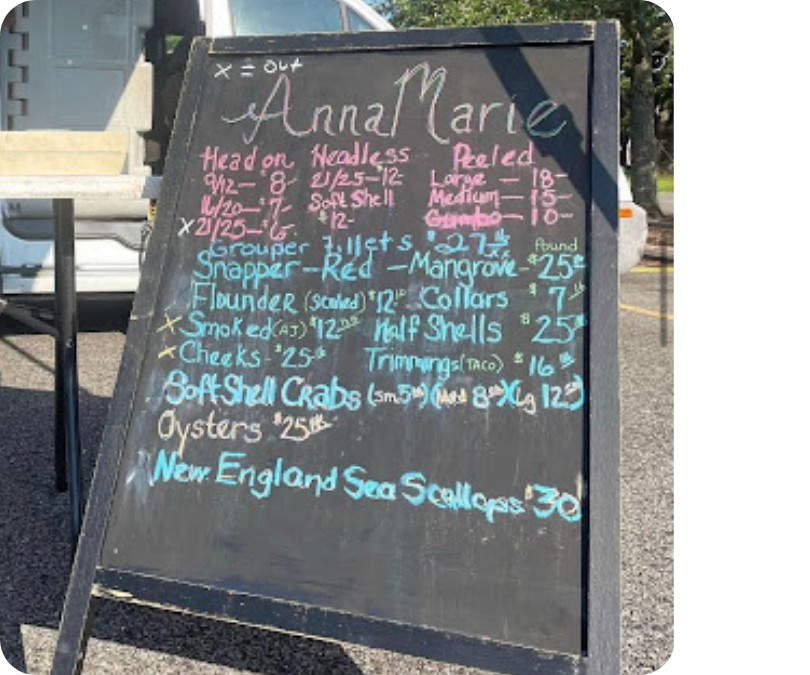 x = out
AnnaMarie
Head on Headless Peeled
9/12 - $8 21/25 - $12 Large - 18-
16/20 - $7 Soft Shell Medium - 15-
x 21/25 - $6 $12- Gumbo - 10-
Grouper Fillets $27
Pound
Snapper - Red - Mangrove - $25
Flounder (Scaled) $12 Collars $7
x Smoked (AJ) $12 Half Shells $25
x Cheeks $25 Trimmings (TACO) $16
Soft Shell Crabs (sm 5) (Med 8) (Lg 12)
Oysters $25
New England Sea Scallops $30